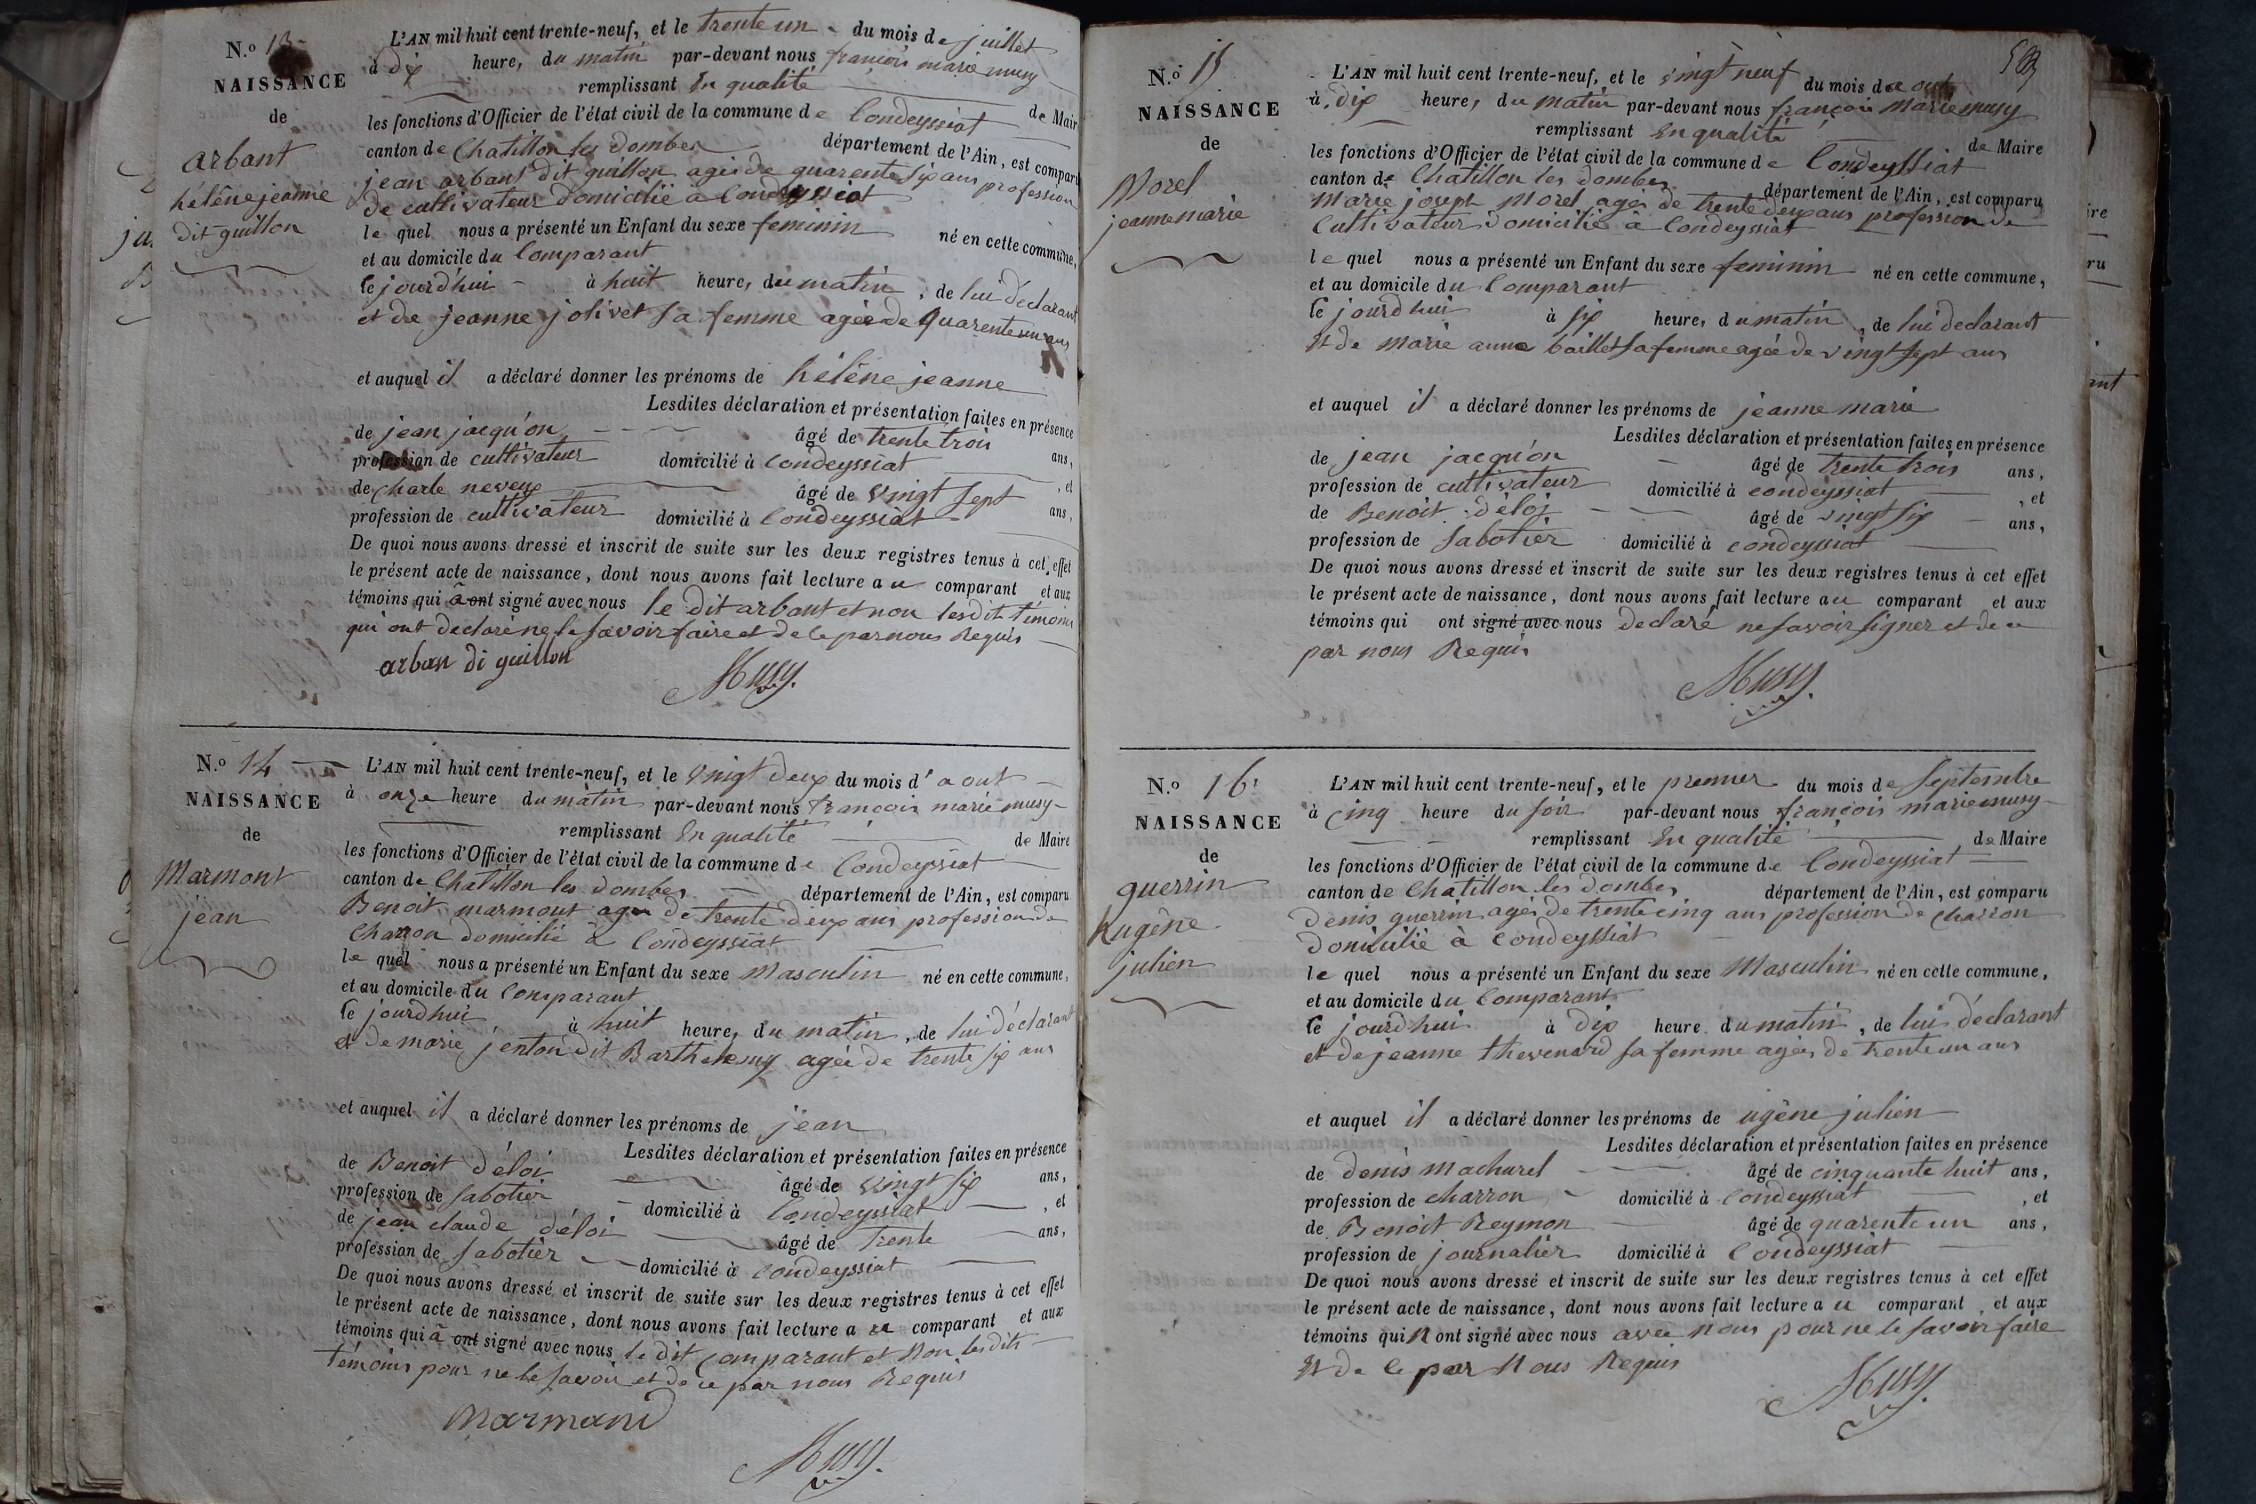 N.º 13
NAISSANCE
de
arbant
hélène jeanne
dit guillon
L'AN mil huit cent trente-neuf, et le trente un du mois de juillet
à dix heure, du matin par-devant nous françois marie musy
remplissant En qualité de Maire
les fonctions d'Officier de l'état civil de la commune de Condeyssiat
canton de Chatillon les dombes département de l'Ain, est comparu
jean arbant dit guillon agés de quarente six ans profession
de cultivateur domicilié à Condeyssiat
le quel nous a présenté un Enfant du sexe feminin né en cette commune,
et au domicile du Comparant
le jourd'hui à huit heure, du matin, de lui déclarant
et de jeanne jolivet sa femme agée de quarente un ans
et auquel il a déclaré donner les prénoms de hélène jeanne
Lesdites déclaration et présentation faites en présence
de jean jacqu'on âgé de trente trois ans,
profession de cultivateur domicilié à condeyssiat , et
de Charle neveux âgé de vingt sept ans,
profession de cultivateur domicilié à Condeyssiat
De quoi nous avons dressé et inscrit de suite sur les deux registres tenus à cet effet
le présent acte de naissance, dont nous avons fait lecture au comparant et aux
témoins qui a ont signé avec nous le dit arbant et non lesdit témoins
qui ont declaré ne le savoir faire et de ce par nous Requis
arban di guillon
Musy.
N.º 14
NAISSANCE
de
Marmont
jean
L'AN mil huit cent trente-neuf, et le vingt deux du mois d'aout
à onze heure du matin par-devant nous françois marie musy
remplissant En qualité de Maire
les fonctions d'Officier de l'état civil de la commune de Condeyssiat
canton de Chatillon les dombes département de l'Ain, est comparu
Benoit marmont agé de trente deux ans profession de
Charron domicilié à Condeyssiat
le quel nous a présenté un Enfant du sexe Masculin né en cette commune,
et au domicile du Comparant
le jourdhui à huit heure, du matin, de lui déclarant
et de marie jenton dit Barthelemy agée de trente six ans
et auquel il a déclaré donner les prénoms de jean
Lesdites déclaration et présentation faites en présence
de Benoit déloi âgé de vingt six ans,
profession de sabotier domicilié à Condeyssiat , et
de jean claude déloi âgé de trente ans,
profession de sabotier domicilié à condeyssiat
De quoi nous avons dressé et inscrit de suite sur les deux registres tenus à cet effet
le présent acte de naissance, dont nous avons fait lecture au comparant et aux
témoins qui a ont signé avec nous le dit Comparant et non lesdits
témoins pour ne le savoir et de ce par nous Requis
Marmand
Musy.
N.º 15
NAISSANCE
de
Morel
jeanne marie
L'AN mil huit cent trente-neuf, et le vingt neuf du mois de aout
à dix heure, du matin par-devant nous françois marie musy
remplissant En qualité de Maire
les fonctions d'Officier de l'état civil de la commune de Condeyssiat
canton de Chatillon les dombes département de l'Ain, est comparu
Marie joseph Morel agés de trente deux ans profession de
Cultivateur domicilié à Condeyssiat
le quel nous a présenté un Enfant du sexe feminin né en cette commune,
et au domicile du Comparant
le jourdhui à six heure, du matin, de lui declarant
et de Marie anne baillet sa femme agée de vingt sept ans
et auquel il a déclaré donner les prénoms de jeanne marie
Lesdites déclaration et présentation faites en présence
de jean jacqu'on âgé de trente trois ans,
profession de cultivateur domicilié à condeyssiat , et
de Benoit déloi âgé de vingt six ans,
profession de sabotier domicilié à condeyssiat
De quoi nous avons dressé et inscrit de suite sur les deux registres tenus à cet effet
le présent acte de naissance, dont nous avons fait lecture au comparant et aux
témoins qui ont signé avec nous declaré ne savoir signer et de ce
par nous Requis
Musy.
N.º 16
NAISSANCE
de
guerrin
Eugène
julien
L'AN mil huit cent trente-neuf, et le premier du mois de Septembre
à cinq heure du soir par-devant nous françois marie musy
remplissant En qualité de Maire
les fonctions d'Officier de l'état civil de la commune de Condeyssiat
canton de Chatillon les dombes département de l'Ain, est comparu
denis guerrin agés de trente cinq ans profession de charron
domicilié à condeyssiat
le quel nous a présenté un Enfant du sexe Masculin né en cette commune,
et au domicile du Comparant
le jourdhui à dix heure du matin, de lui déclarant
et de jeanne thevenard sa femme agées de trente un ans
et auquel il a déclaré donner les prénoms de ugène julien
Lesdites déclaration et présentation faites en présence
de denis machurel âgé de cinquante huit ans,
profession de charron domicilié à Condeyssiat , et
de Benoit Reymon âgé de quarente un ans,
profession de journalier domicilié à Condeyssiat
De quoi nous avons dressé et inscrit de suite sur les deux registres tenus à cet effet
le présent acte de naissance, dont nous avons fait lecture au comparant, et aux
témoins qui n ont signé avec nous avec nous pour ne le savoir faire
et de ce par Nous Requis
Musy.